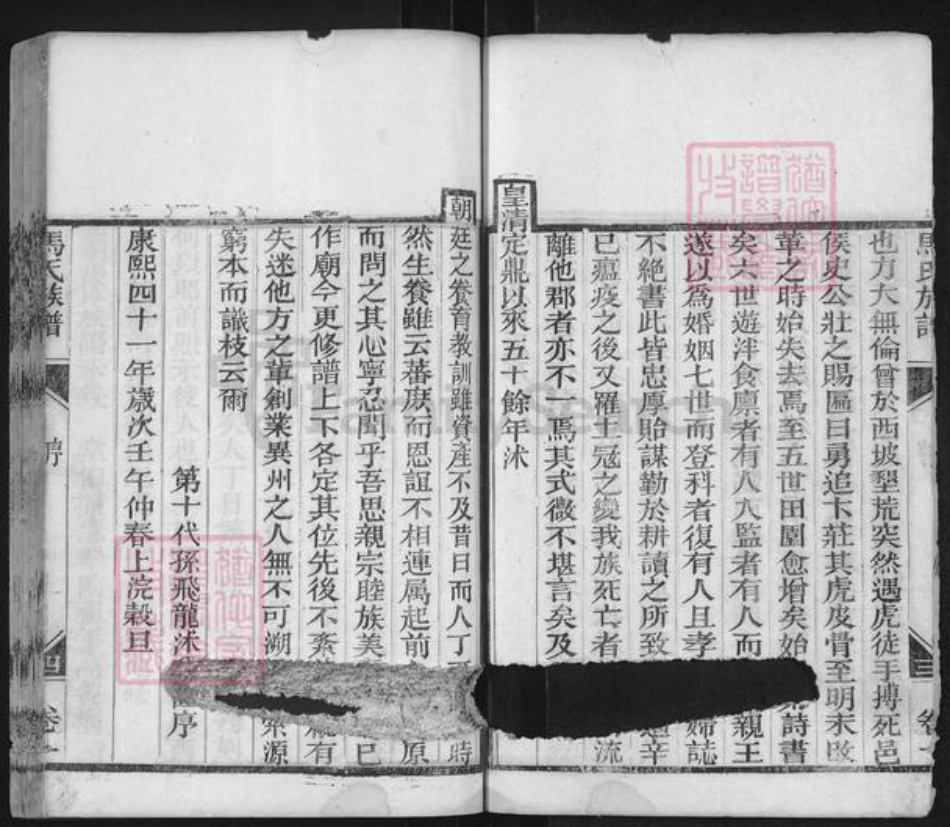 馬氏族譜
也方大無倫曾於西坡墾荒突然遇虎徒手搏死邑
侯史公壯之賜匾曰勇追卞莊其虎皮骨至明末改
革之時始失去焉至五世田園愈增矣始 詩書
矣六世遊泮食廩者有人入監者有人而 親王
遂以爲婚姻七世而登科者復有人且孝 婦誌
不絶書此皆忠厚貽謀勤於耕讀之所致 辛
已瘟疫之後又罹土寇之變我族死亡者 流
離他郡者亦不一焉其式微不堪言矣及
皇清定鼎以來五十餘年沐
朝廷之養育教訓雖資產不及昔日而人丁 時
然生養雖云蕃庶而恩誼不相連屬起前 原
而問之其心寧忍聞乎吾思親宗睦族美 已
作廟今更修譜上下各定其位先後不紊 有
失迷他方之輩創業異州之人無不可溯 索源
窮本而識枝云爾
第十代孫飛龍沐 序
康熙四十一年歲次壬午仲春上浣穀旦
馬氏族譜
序
四
卷一